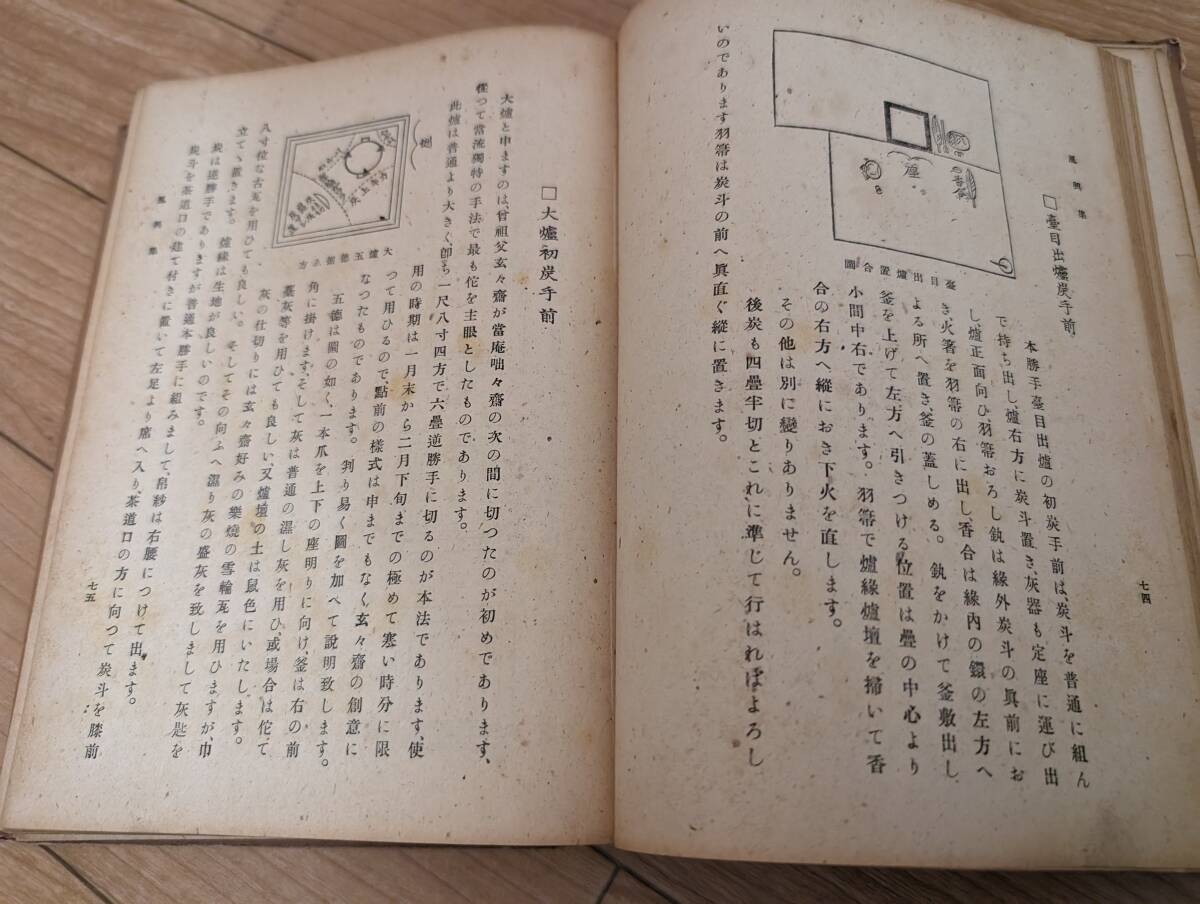 風興集
□臺目出爐炭手前
本勝手臺目出爐の初炭手前は、炭斗を普通に組ん
で持ち出し、爐右方に炭斗置き、灰器も定座に運び出
し爐正面向ひ、羽箒おろし釻は緣外炭斗の眞前にお
き火箸を羽箒の右に出し香合は緣內の鐶の左方へ
よる所へ置き、釜の蓋しめる。釻をかけて釜敷出し
釜を上げて左方へ引きつける位置は疊の中心より
小間中右であります。羽箒で爐緣爐壇を掃いて香
合の右方へ縱におき下火を直します。
その他は別に變りありません。
後炭も四疊半切とこれに準じて行はれゝばよろし
臺目出爐置合圖
爐
香合
いのであります羽箒は炭斗の前へ眞直ぐ縱に置きます。
七四
□大爐初炭手前
大爐と申ますのは、曾祖父玄々齋が當庵咄々齋の次の間に切つたのが初めであります、
從つて當流獨特の手法で最も佗を主眼としたものであります。
此爐は普通より大きく、卽ち一尺八寸四方で六疊逆勝手に切るのが本法であります、使
用の時期は一月末から二月下旬までの極めて寒い時分に限
つて用ひるので、點前の樣式は申までもなく玄々齋の創意に
なつたものであります。判り易く圖を加へて說明致します。
五德は圖の如く、一本爪を上下の座明りに向け、釜は右の前
角に掛けます、そして灰は普通の濕し灰を用ひ、或場合は佗て
藁灰等を用ひても良しい、又爐壇の土は鼠色にいたします。
灰の仕切りには玄々齋好みの樂燒の雪輪瓦を用ひますが、巾
大爐五德据ゑ方
八寸位な古瓦を用ひても良しい。そしてその向ふへ濕り灰の盛灰を致しまして灰匙を
立てゝ置きます。爐緣は生地が良しいのです。
炭は逆勝手でありますが普通本勝手に組みまして、帛紗は右腰につけて出ます。
炭斗を茶道口の建て付きに置いて左足より席へ入り、茶道口の方に向つて炭斗を膝前
風興集
七五